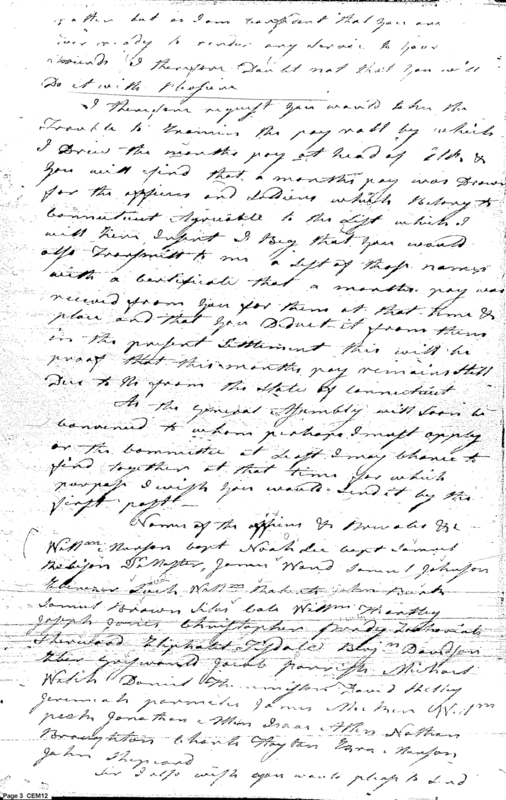 rather but as I am confident that you are
ever ready to render any service to your
friends I therefore Doubt not that you will
Do it with Pleasure
I therefore request you would take the
Trouble to Examine the pay roll by which
I Drew the months pay at head of Elk &
you will find that a months pay was Drawn
for the officers and Soldiers which Belong to
Connecticut Agreeable to the List which I
will here Insert I Beg that you would
also Transmitt to me a List of those names
with a Certificate that a months pay was
received from you for them at that time &
place and that you Deduct it from them
in the present Settlement this will be
proof that this months pay remains Still
Due to Us from the State of Connecticut
As the General Assembly will Soon be
convened to whom perhaps I must apply
or the Committee at Least I may chance to
find together at that time for which
purpose I wish you would Send it by the
first post
Names of the officers & Privates &c
Willm Munson Capt Noah Lee Capt Samuel
Master, James Ward Samuel Johnson
Ebenezer Willm John
Samuel Brown Silas Cole Willm
Joseph Jones Christopher Brady Zachariah
Sherwood Eliphalet Tisdale Benjn Davidson
Eber Griswould Jacob Parrish Michael
Walch Daniel David
Jeremiah parmele James Willm
Jonathan Allen Isaac Allen Nathan
Broughton Charls Ezra Munson
John Sheperd
Sir I also wish you would pleas to Send
Page 3 CEM12